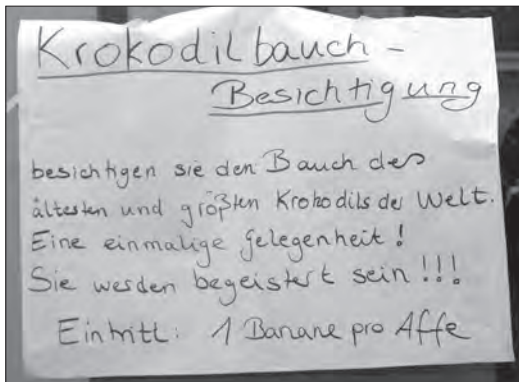 Krokodilbauch-
Besichtigung
besichtigen sie den Bauch des
ältesten und größten Krokodils der Welt.
Eine einmalige Gelegenheit!
Sie werden begeistert sein!!!
Eintritt: 1 Banane pro Affe